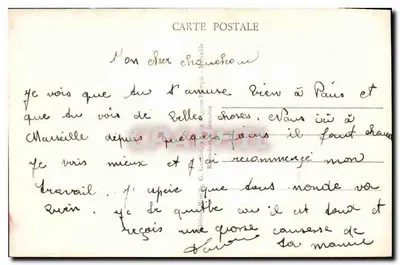 CARTE POSTALE
Mon cher chouchou
Je vois que tu t'amuse bien à Paris et
que tu vois de belles choses. Nous ici à
Marseille depuis quelques jours il fait chaud
Je vais mieux et j'ai recommencé mon
travail. J'espère que tous monde va
bien. Je te quitte car il est tard et
reçois une grosse caresse de
ta mamie